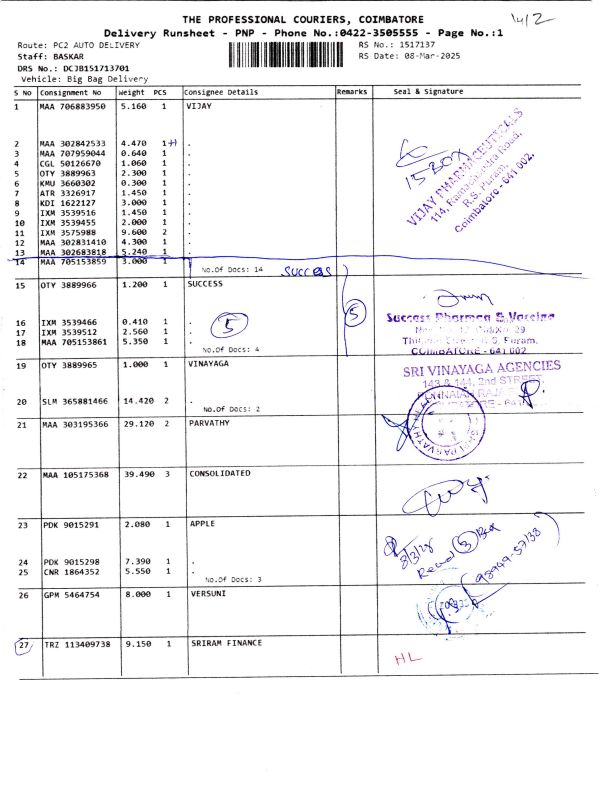 THE PROFESSIONAL COURIERS, COIMBATORE
1/2
Delivery Runsheet - PNP - Phone No.:0422-3505555 - Page No.:1
Route: PC2 AUTO DELIVERY
RS No.: 1517137
Staff: BASKAR
RS Date: 08-Mar-2025
DRS No.: DCJB151713701
Vehicle: Big Bag Delivery
S No Consignment No Weight PCS Consignee Details Remarks Seal & Signature
1 MAA 706883950 5.160 1 VIJAY
2 MAA 302842533 4.470 1 .
3 MAA 707959044 0.640 1 .
4 CGL 50126670 1.060 1 .
5 OTY 3889963 2.300 1 .
6 KMU 3660302 0.300 1 .
7 ATR 3326917 1.450 1 .
8 KDI 1622127 3.000 1 .
9 IXM 3539516 1.450 1 .
10 IXM 3539455 2.000 1 .
11 IXM 3575988 9.600 2 .
12 MAA 302831410 4.300 1 .
13 MAA 302683818 5.240 1 .
14 MAA 705153859 3.000 1
No.Of Docs: 14
15 BOX
VIJAY PHARMACEUTICALS
114, Ramachandra Road,
R.S. Puram,
Coimbatore - 641 002.
success
15 OTY 3889966 1.200 1 SUCCESS
16 IXM 3539466 0.410 1 .
17 IXM 3539512 2.560 1 .
18 MAA 705153861 5.350 1 .
No.Of Docs: 4
5
5
Success Pharma & Vaccine
COIMBATORE - 641 002
19 OTY 3889965 1.000 1 VINAYAGA
20 SLM 365881466 14.420 2 .
No.Of Docs: 2
SRI VINAYAGA AGENCIES
143 & 144, 2nd STREET
21 MAA 303195366 29.120 2 PARVATHY
22 MAA 105175368 39.490 3 CONSOLIDATED
23 PDK 9015291 2.080 1 APPLE
24 PDK 9015298 7.390 1 .
25 CNR 1864352 5.550 1 .
No.Of Docs: 3
8/3/25
3 Box
98949-57138
26 GPM 5464754 8.000 1 VERSUNI
27 TRZ 113409738 9.150 1 SRIRAM FINANCE
HL